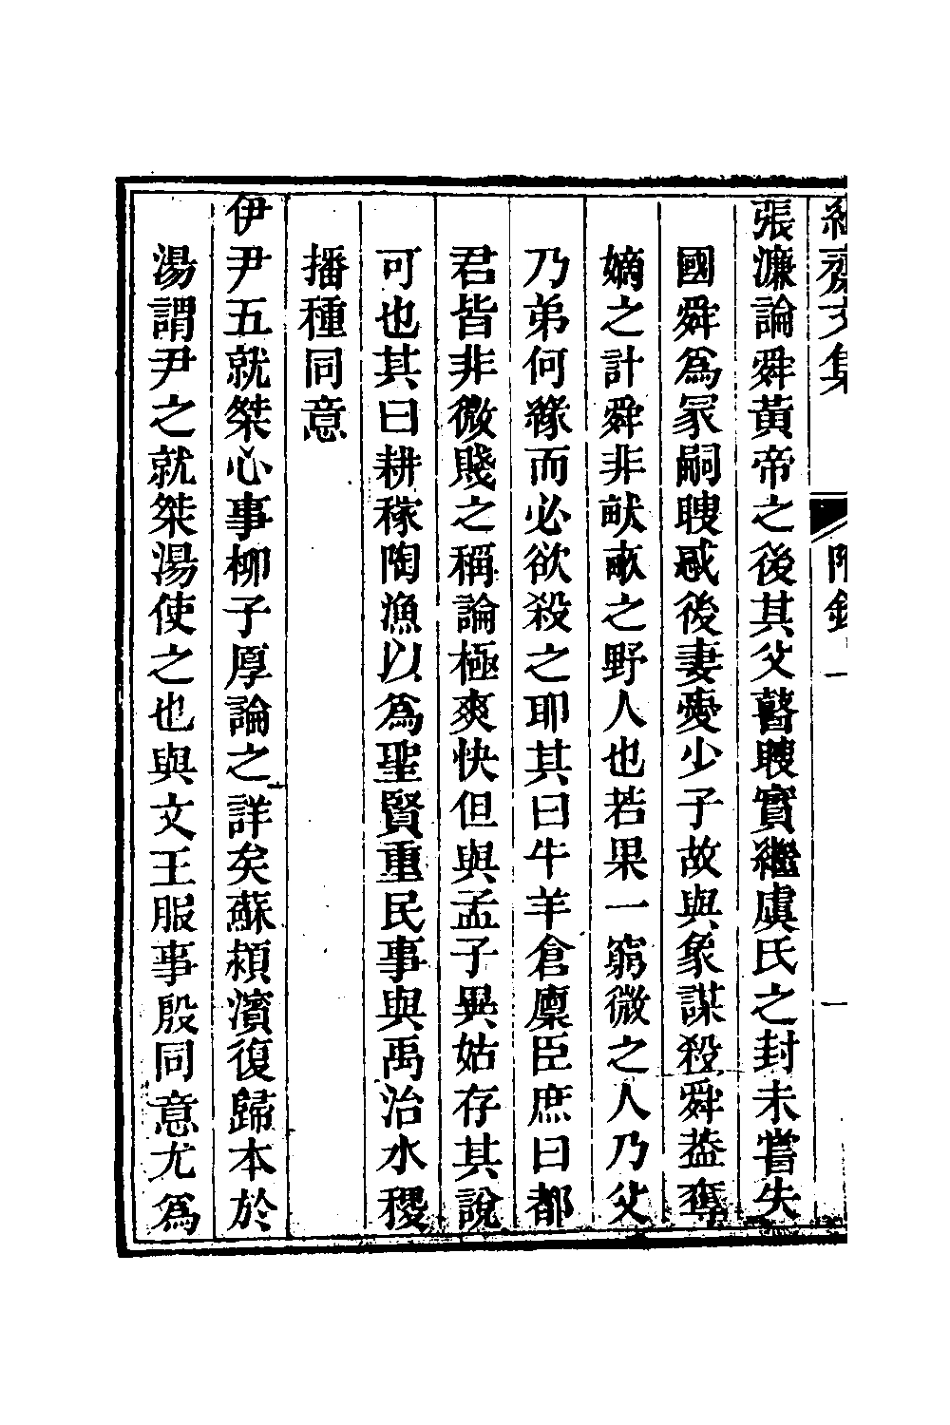 齋文集 附錄一 一
張濂論舜黃帝之後其父瞽瞍實繼虞氏之封未嘗失
國舜爲冢嗣瞍惑後妻愛少子故與象謀殺舜葢奪
嫡之計舜非畎畝之野人也若果一窮微之人乃父
乃弟何緣而必欲殺之耶其曰牛羊倉廩臣庶曰都
君皆非微賤之稱論極爽快但與孟子異姑存其說
可也其曰耕稼陶漁以爲聖賢重民事與禹治水稷
播種同意
伊尹五就桀心事柳子厚論之詳矣蘇頴濱復歸本於
湯謂尹之就桀湯使之也與文王服事殷同意尤爲